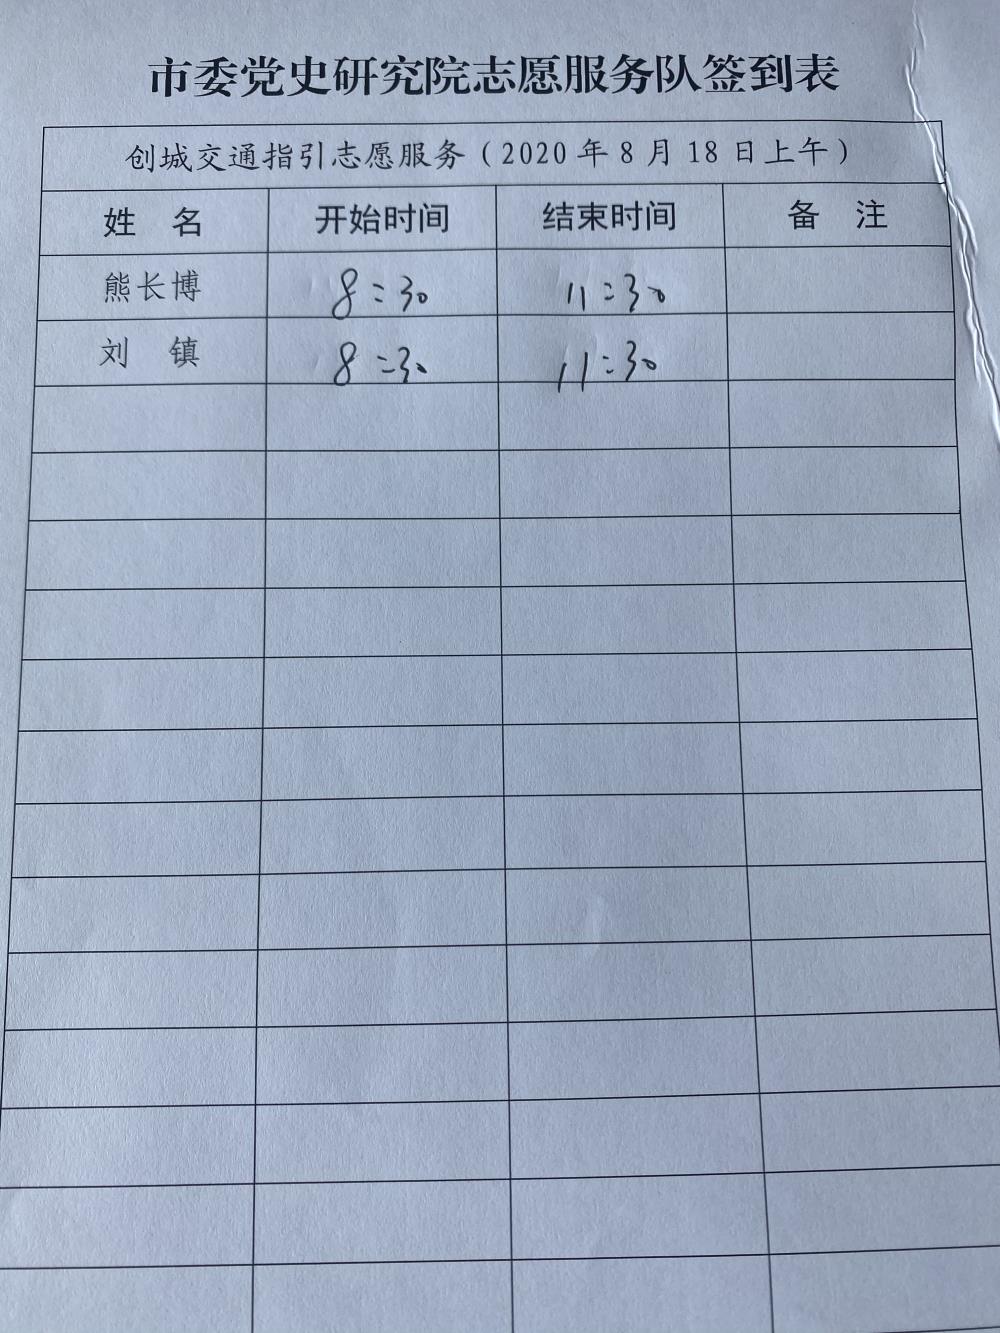 市委党史研究院志愿服务队签到表
创城交通指引志愿服务（2020年8月18日上午）
姓 名 开始时间 结束时间 备 注
熊长博 8:30 11:30
刘 镇 8:30 11:30